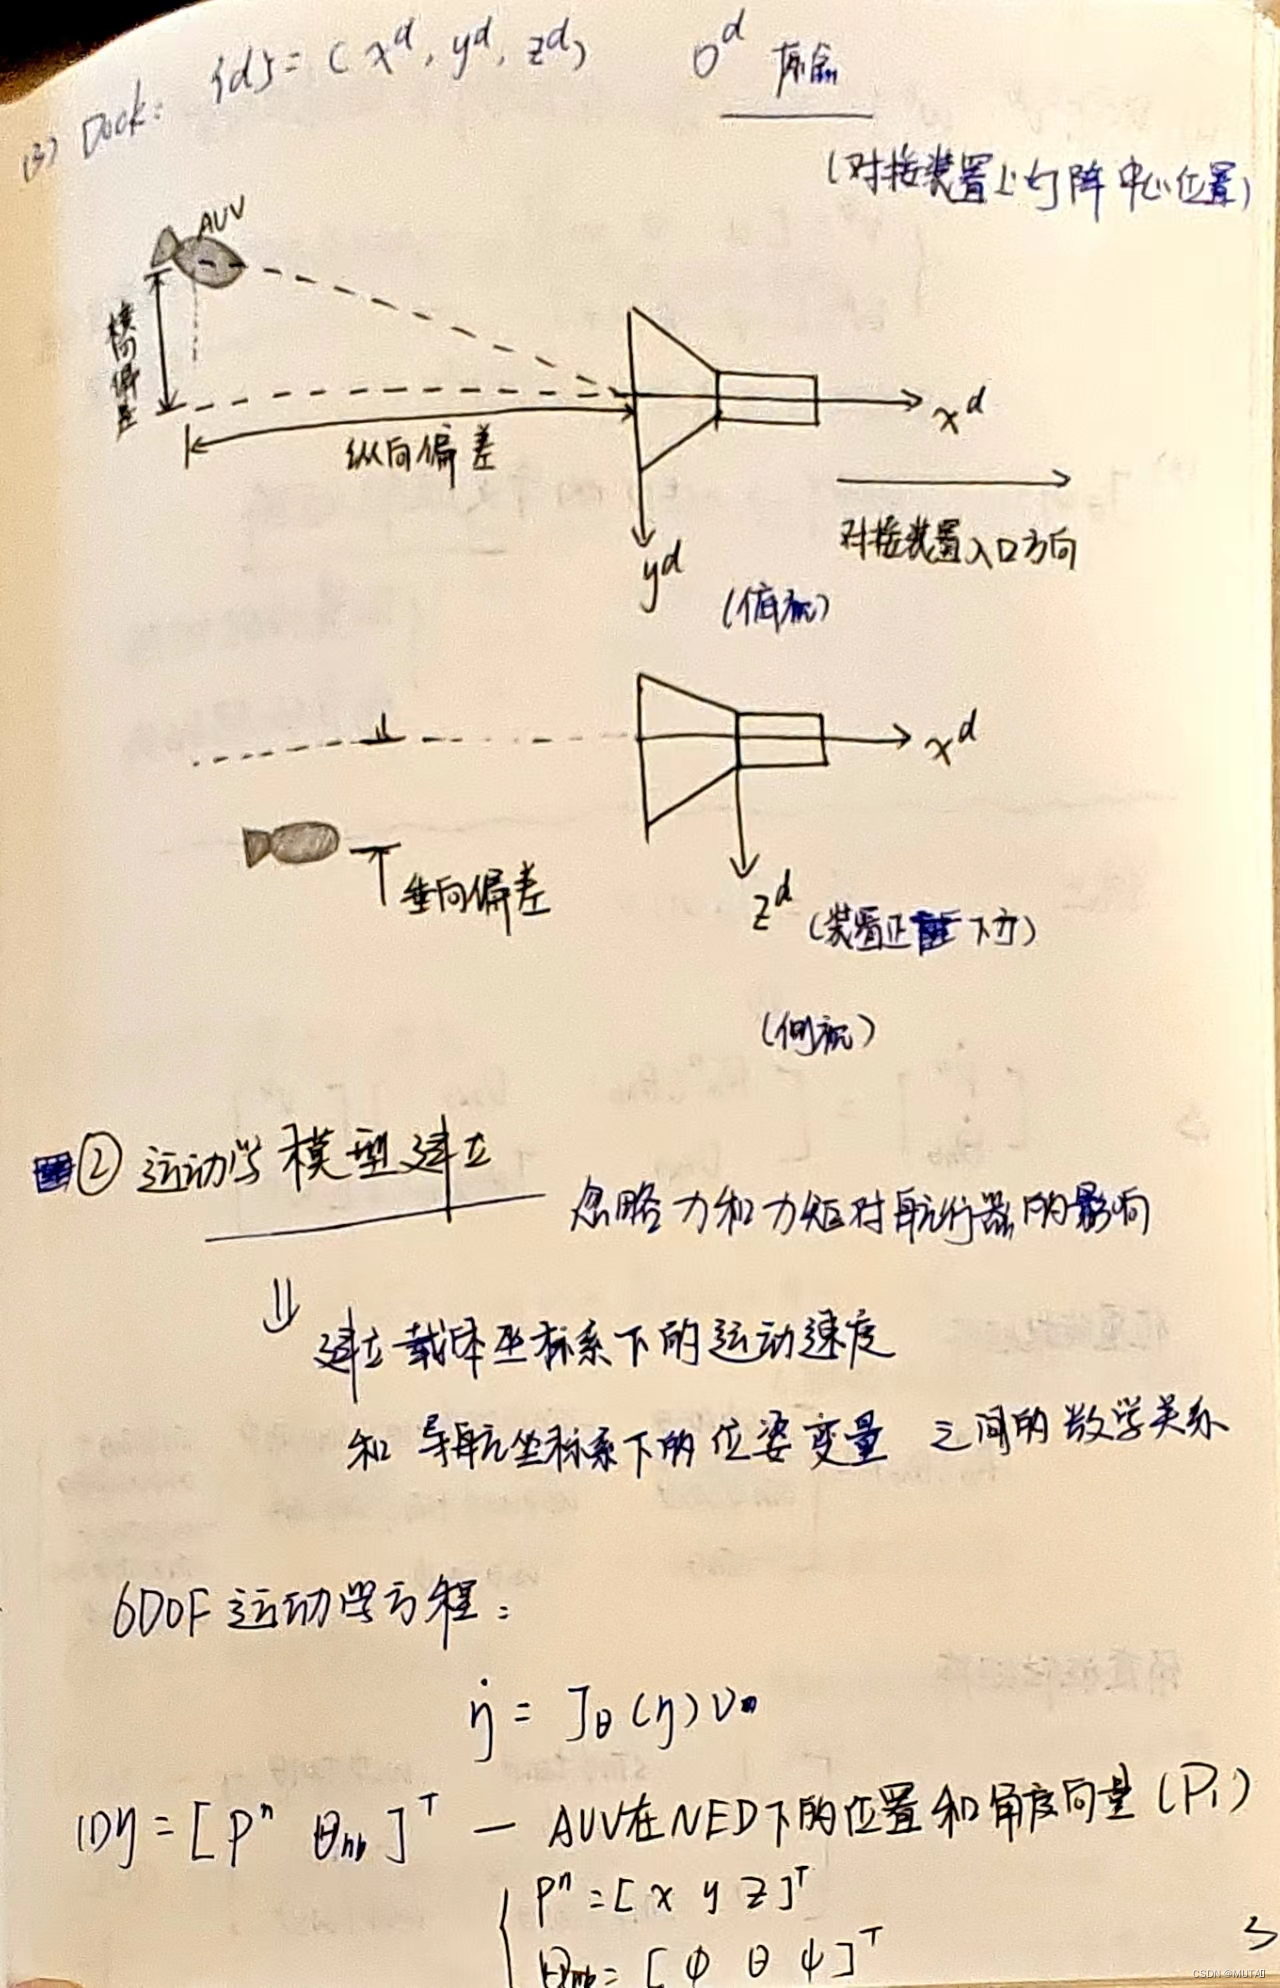 (3) Dock: {d} = (x^d, y^d, z^d) O^d 原点
(对接装置上灯阵中心位置)
AUV
横向偏差
x^d
纵向偏差
对接装置入口方向
y^d
(俯视)
x^d
垂向偏差
z^d (装置正下方)
(侧视)
② 运动学模型建立
忽略力和力矩对航行器的影响
⇓ 建立载体坐标系下的运动速度
和 导航坐标系下的位姿变量 之间的数学关系
6DOF 运动学方程:
η̇ = J_θ(η)ν
(1) η = [P^n Θ_nb]^T — AUV在NED下的位置和角度向量 (P_1)
P^n = [x y z]^T
Θ_nb = [φ θ ψ]^T
3
CSDN @MUTA